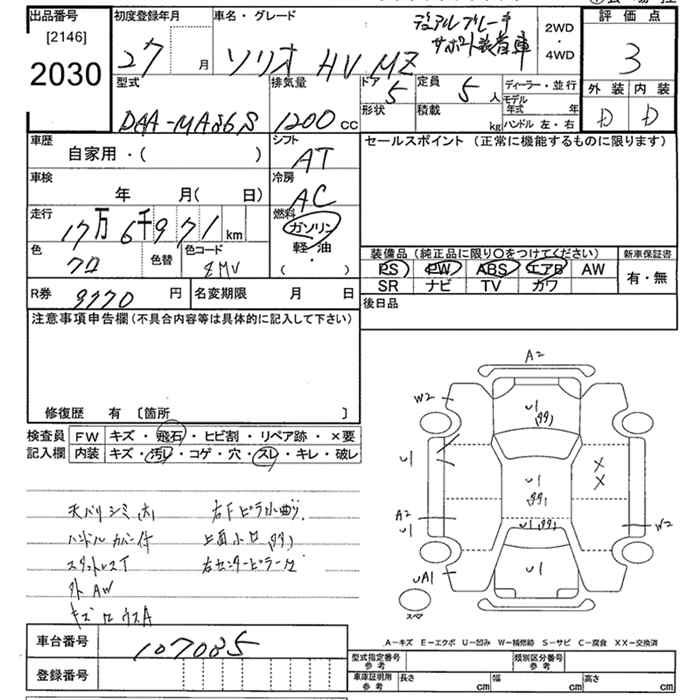 出品番号 初度登録年月 車名・グレード 評価点
[2146]
2030
27 月 ソリオ HV MZ
デュアルブレーキ
サポート装着車
2WD
・
4WD
3
型式 排気量 ドア 5 定員 5 人 ディーラー・並行
DAA-MA36S 1200 cc
形状 積載 kg
モデル年式 年
ハンドル 左・右
外装 内装
D D
車歴 シフト セールスポイント (正常に機能するものに限ります)
自家用・( ) AT
車検 冷房
年 月( 日) AC
走行 燃料
17万6千971 km ガソリン
軽・油
・
( )
色 色替 色コード
クロ ZMV
装備品 (純正品に限り○をつけてください) 新車保証書
PS PW ABS エアB AW 有・無
SR ナビ TV カワ
R券 9770 円 名変期限 月 日
後日品
注意事項申告欄 (不具合内容等は具体的に記入して下さい)
修復歴 有 〔箇所 〕
検査員 FW キズ・飛石・ヒビ割・リペア跡・×要
記入欄 内装 キズ・汚レ・コゲ・穴・スレ・キレ・破レ
天バリシミ(大) 右Fピラ小曲り
ハンドルカバー付
スタットレスT 右センターピラー
外AW
A2
W2
U1
U1
U1
A2
U1
U1
U1
W2
UA1
スペア
×
×
車台番号 107085
登録番号
A-キズ E-エクボ U-凹み W-補修跡 S-サビ C-腐食 XX-交換済
型式指定番号 参考 類別区分番号 参考
車庫証明用 参考 長さ cm 幅 cm 高さ cm